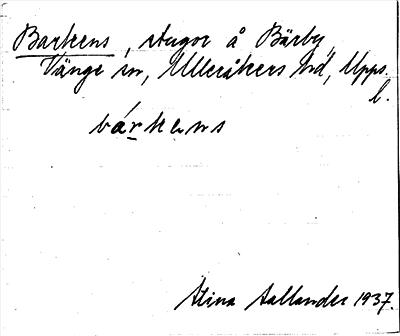 Barkens, stugor å Bärby,
Vänge sn, Ulleråkers hd, Upps.
l.
bárkens
Stina Sallander 1937.